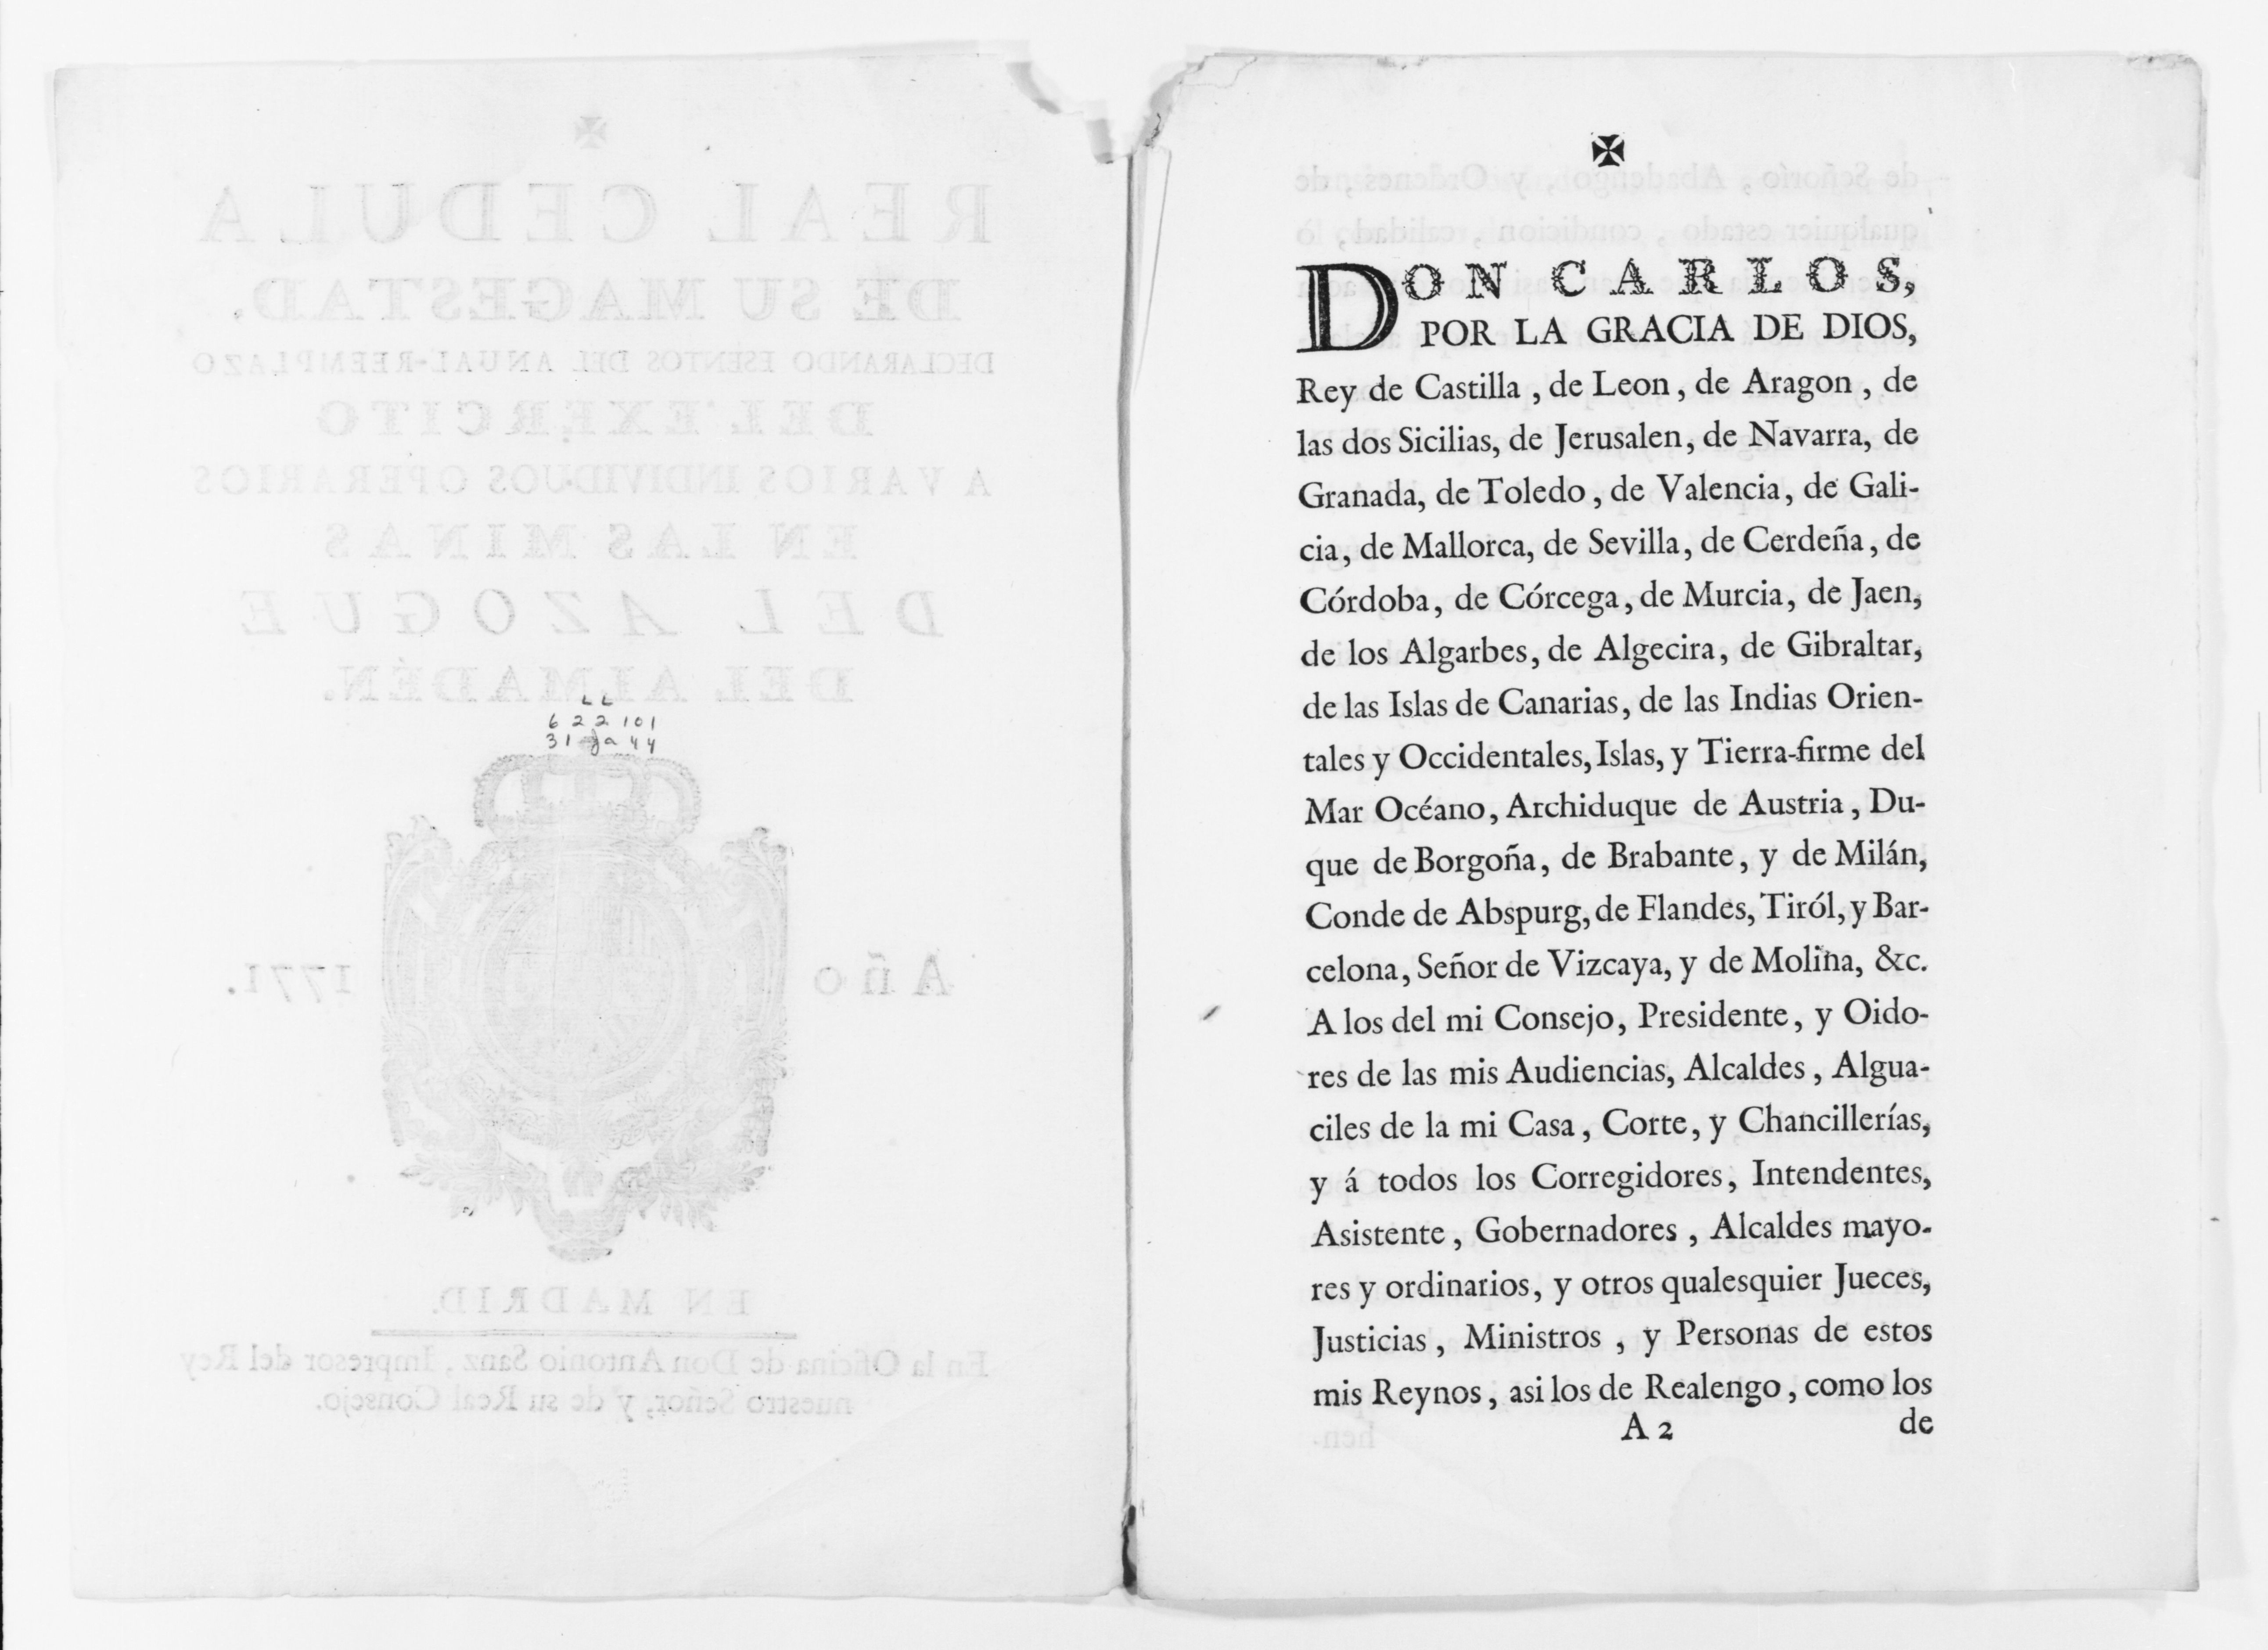 ✠
REAL CEDULA
DE SU MAGESTAD.
DECLARANDO ESENTOS DEL ANUAL-REEMPLAZO
DEL EXERCITO
A VARIOS INDIVIDUOS OPERARIOS
EN LAS MINAS
DEL AZOGUE
DEL ALMADÉN.
LL
622101
31 ja 44
Año 1771.
EN MADRID.
En la Oficina de Don Antonio Sanz, Impresor del Rey
nuestro Señor, y de su Real Consejo.
✠
DON CARLOS,
POR LA GRACIA DE DIOS,
Rey de Castilla, de Leon, de Aragon, de
las dos Sicilias, de Jerusalen, de Navarra, de
Granada, de Toledo, de Valencia, de Gali-
cia, de Mallorca, de Sevilla, de Cerdeña, de
Córdoba, de Córcega, de Murcia, de Jaen,
de los Algarbes, de Algecira, de Gibraltar,
de las Islas de Canarias, de las Indias Orien-
tales y Occidentales, Islas, y Tierra-firme del
Mar Océano, Archiduque de Austria, Du-
que de Borgoña, de Brabante, y de Milán,
Conde de Abspurg, de Flandes, Tiról, y Bar-
celona, Señor de Vizcaya, y de Molina, &c.
A los del mi Consejo, Presidente, y Oido-
res de las mis Audiencias, Alcaldes, Algua-
ciles de la mi Casa, Corte, y Chancillerías,
y á todos los Corregidores, Intendentes,
Asistente, Gobernadores, Alcaldes mayo-
res y ordinarios, y otros qualesquier Jueces,
Justicias, Ministros, y Personas de estos
mis Reynos, asi los de Realengo, como los
A 2 de